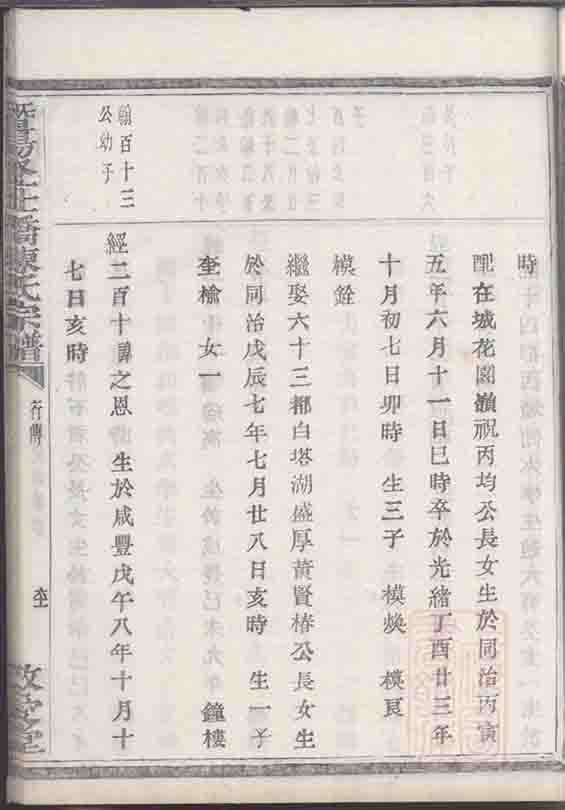 時
配在城花園嶺祝丙均公長女生於同治丙寅
五年六月十一日巳時卒於光緒丁酉廿三年
十月初七日卯時 生三子 模煥 模良
模銓
繼娶六十三都白塔湖盛厚黄賢椿公長女生
於同治戊辰七年七月廿八日亥時 生一子 鐘樓
奎榆 女一
翰百十三
公幼子
經二百十 諱之恩 生於咸豐戊午八年十月十
七日亥時
橋陳氏宗譜
行傳